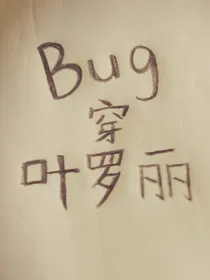 Bug
穿
叶罗丽